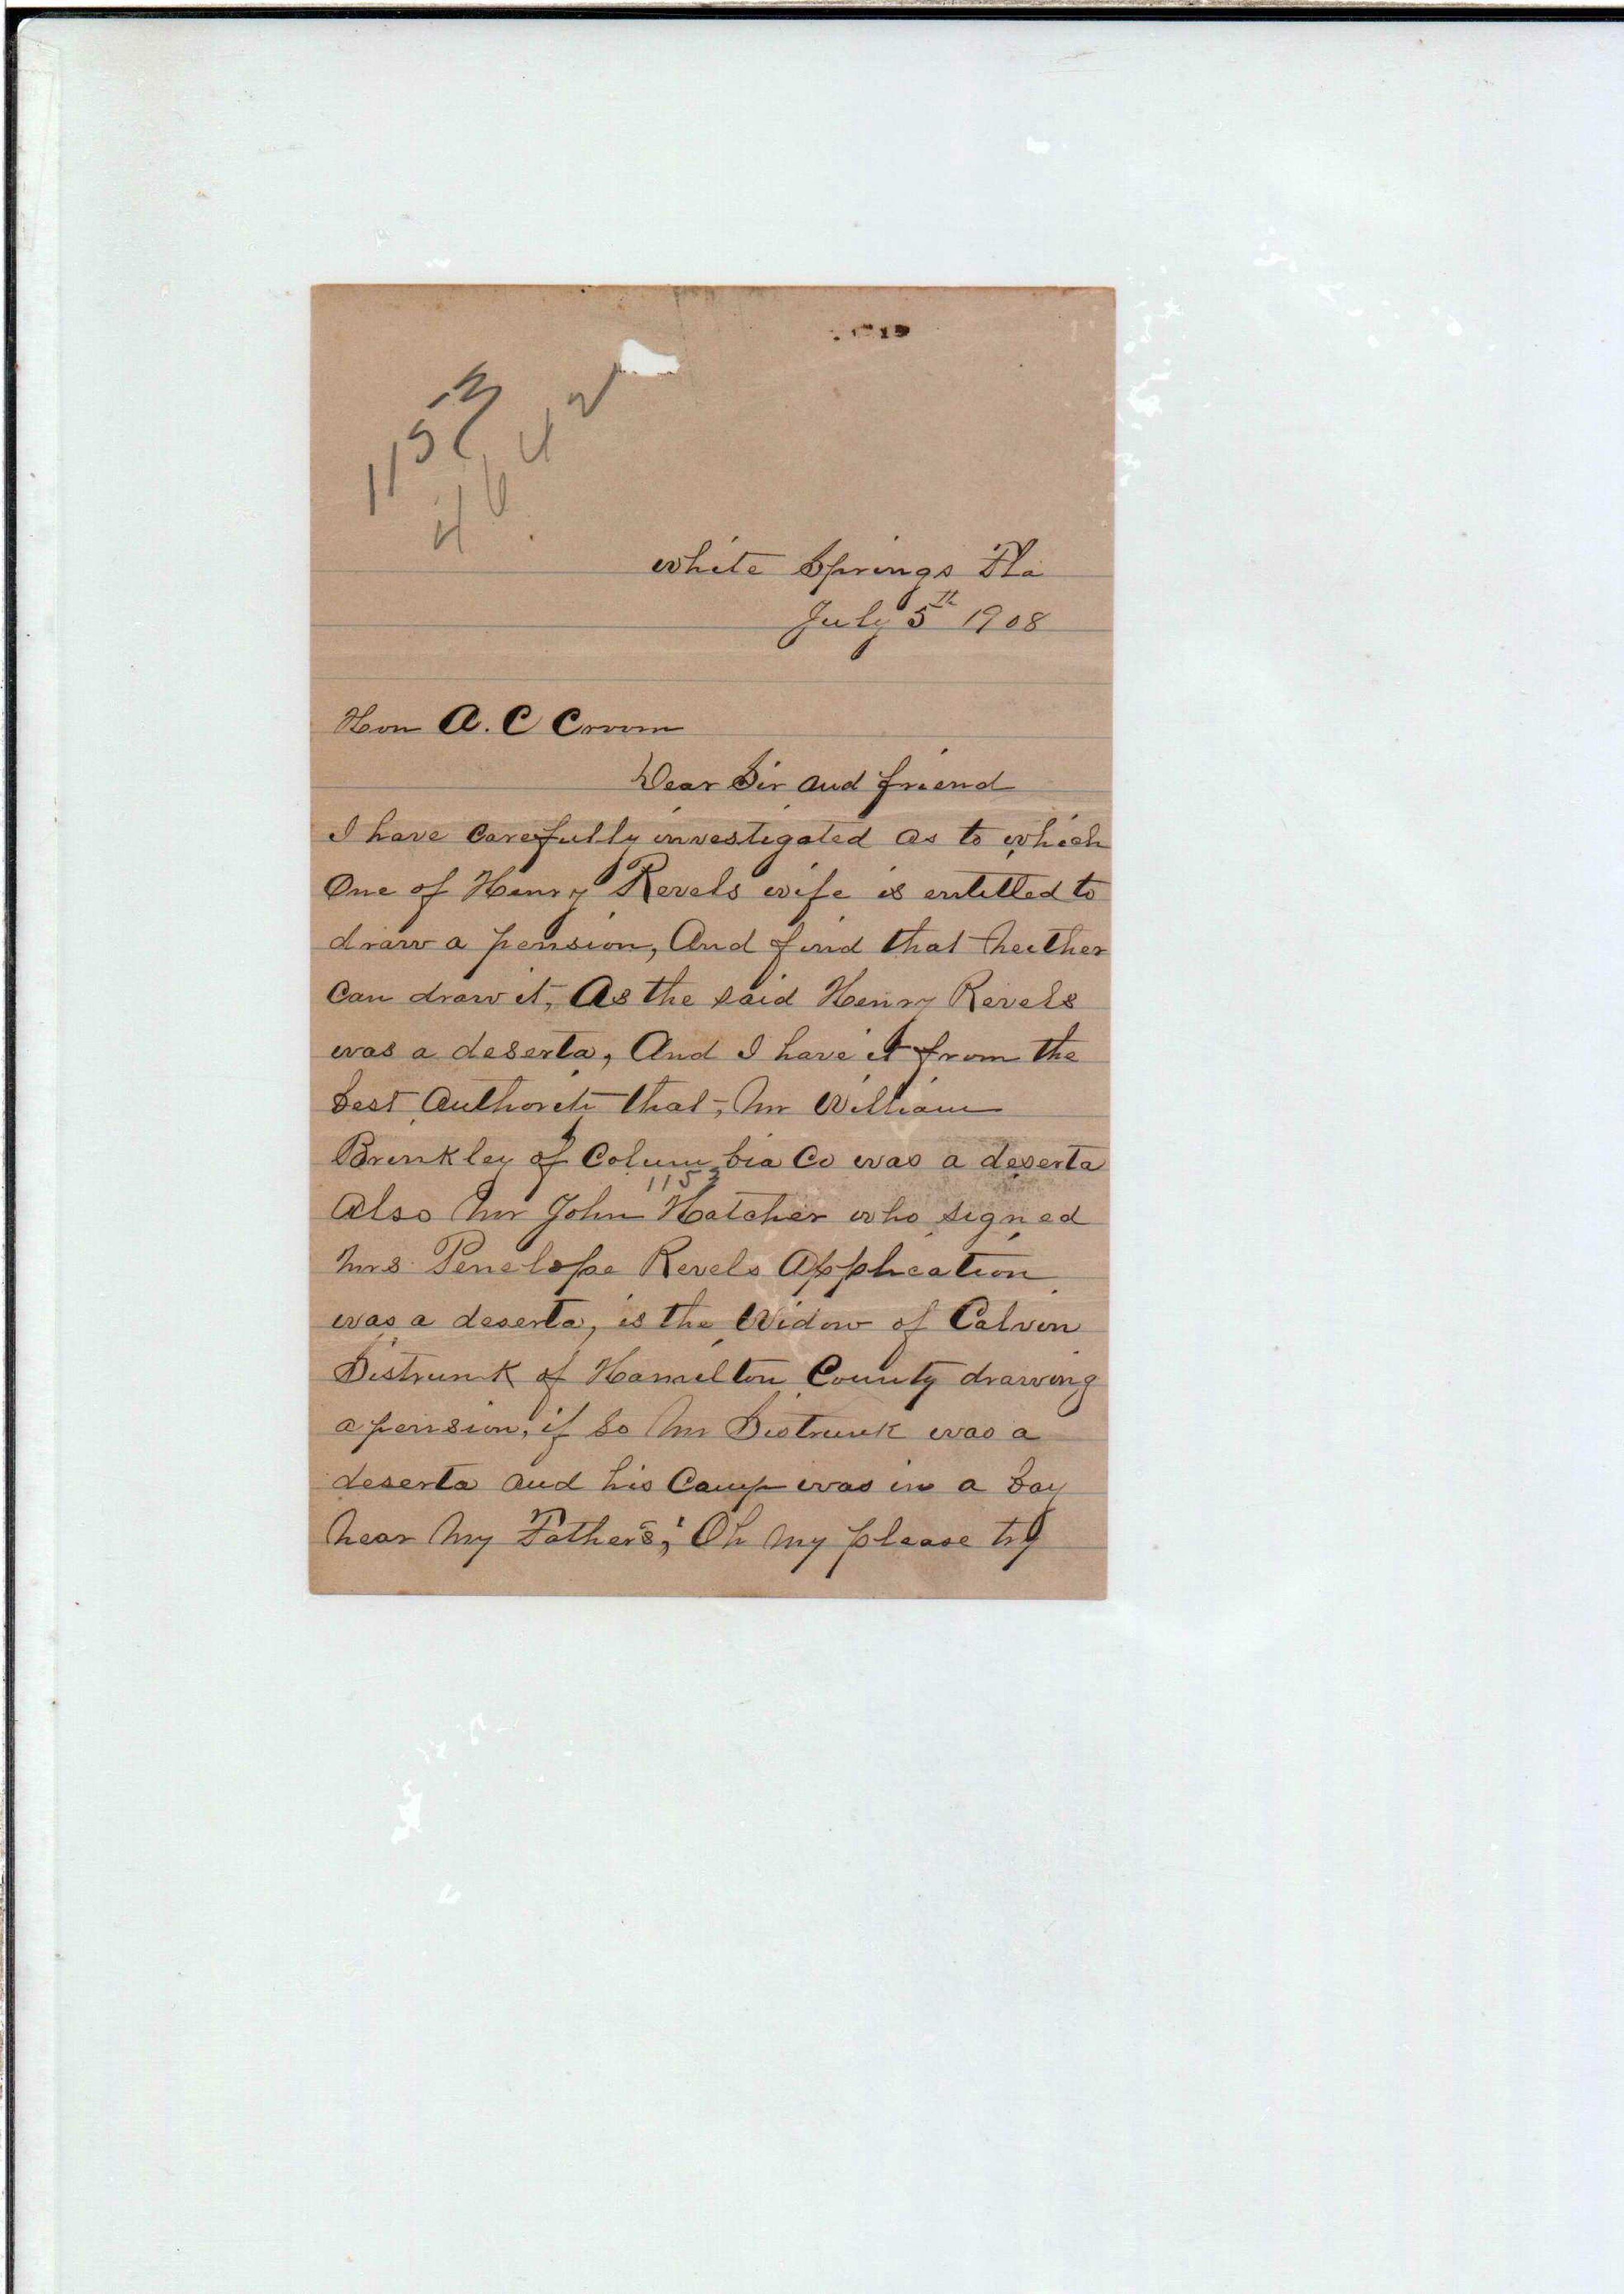 1153
4642
White Springs Fla
July 5th 1908
Hon A. C Croom
Dear Sir and friend
I have carefully investigated as to which
One of Henry Revels wife is entitled to
draw a pension, And find that neither
Can draw it, As the said Henry Revels
was a deserta, And I have it from the
best Authority that, Mr William
Brinkley of Columbia Co was a deserta
1153
Also Mr John Hatcher who signed
Mrs Penelope Revels Application
was a deserta, is the Widow of Calvin
Sistrunk of Hamilton County drawing
a pension, if so Mr Sistrunk was a
deserta and his Camp was in a bay
near my Father's, Oh my please try